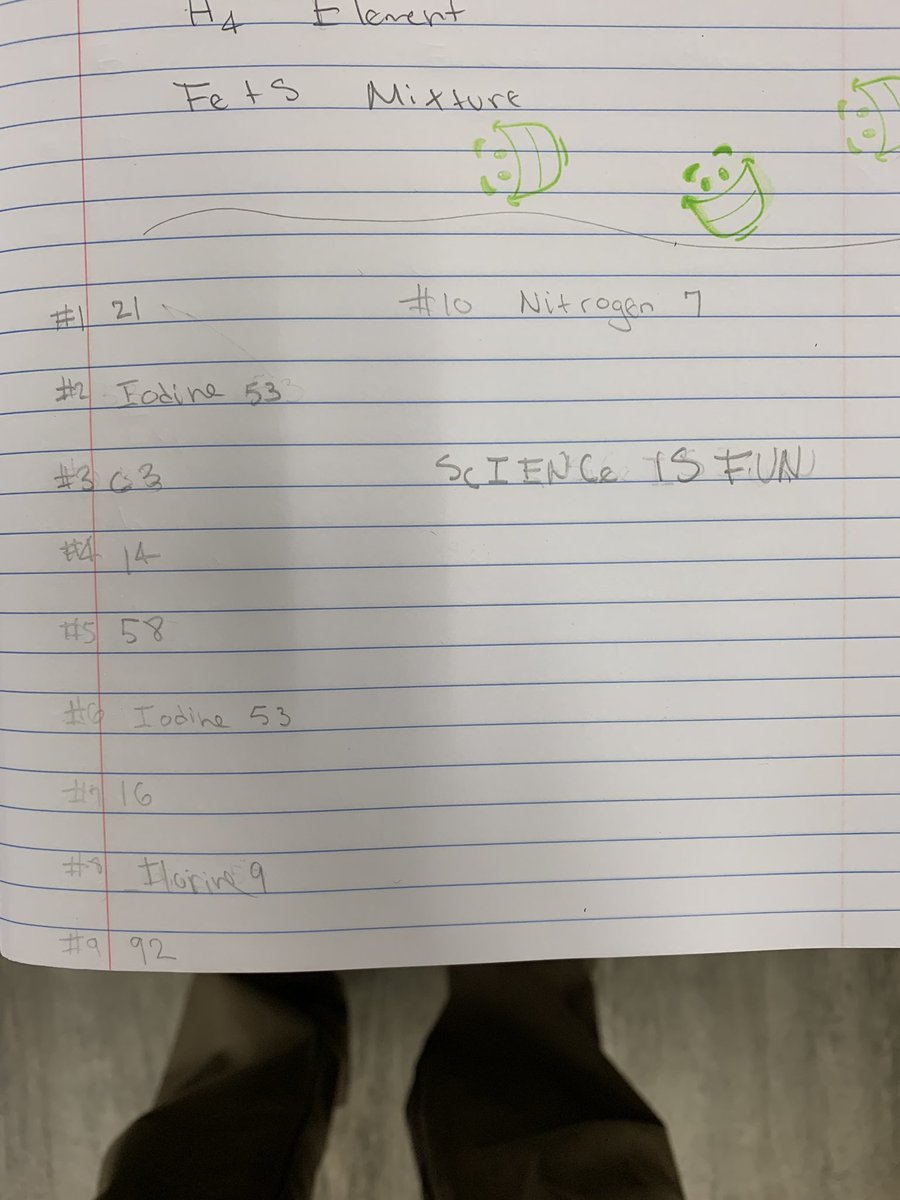 H4 Element
Fe + S Mixture
#1 21
#10 Nitrogen 7
#2 Iodine 53
#3 63
#4 14
#5 58
#6 Iodine 53
#7 16
#8 Florine 9
#9 92
SCIENCe IS FUN